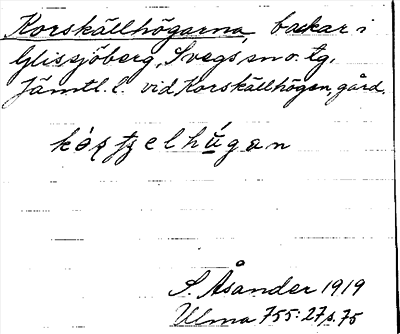 Korskällhögarna, backar i
Glissjöberg, Svegs sn o. tg.
Jämtl. l. vid Korskällhögen, gård.
S. Åsander 1919
Ulma 755:27, s. 75